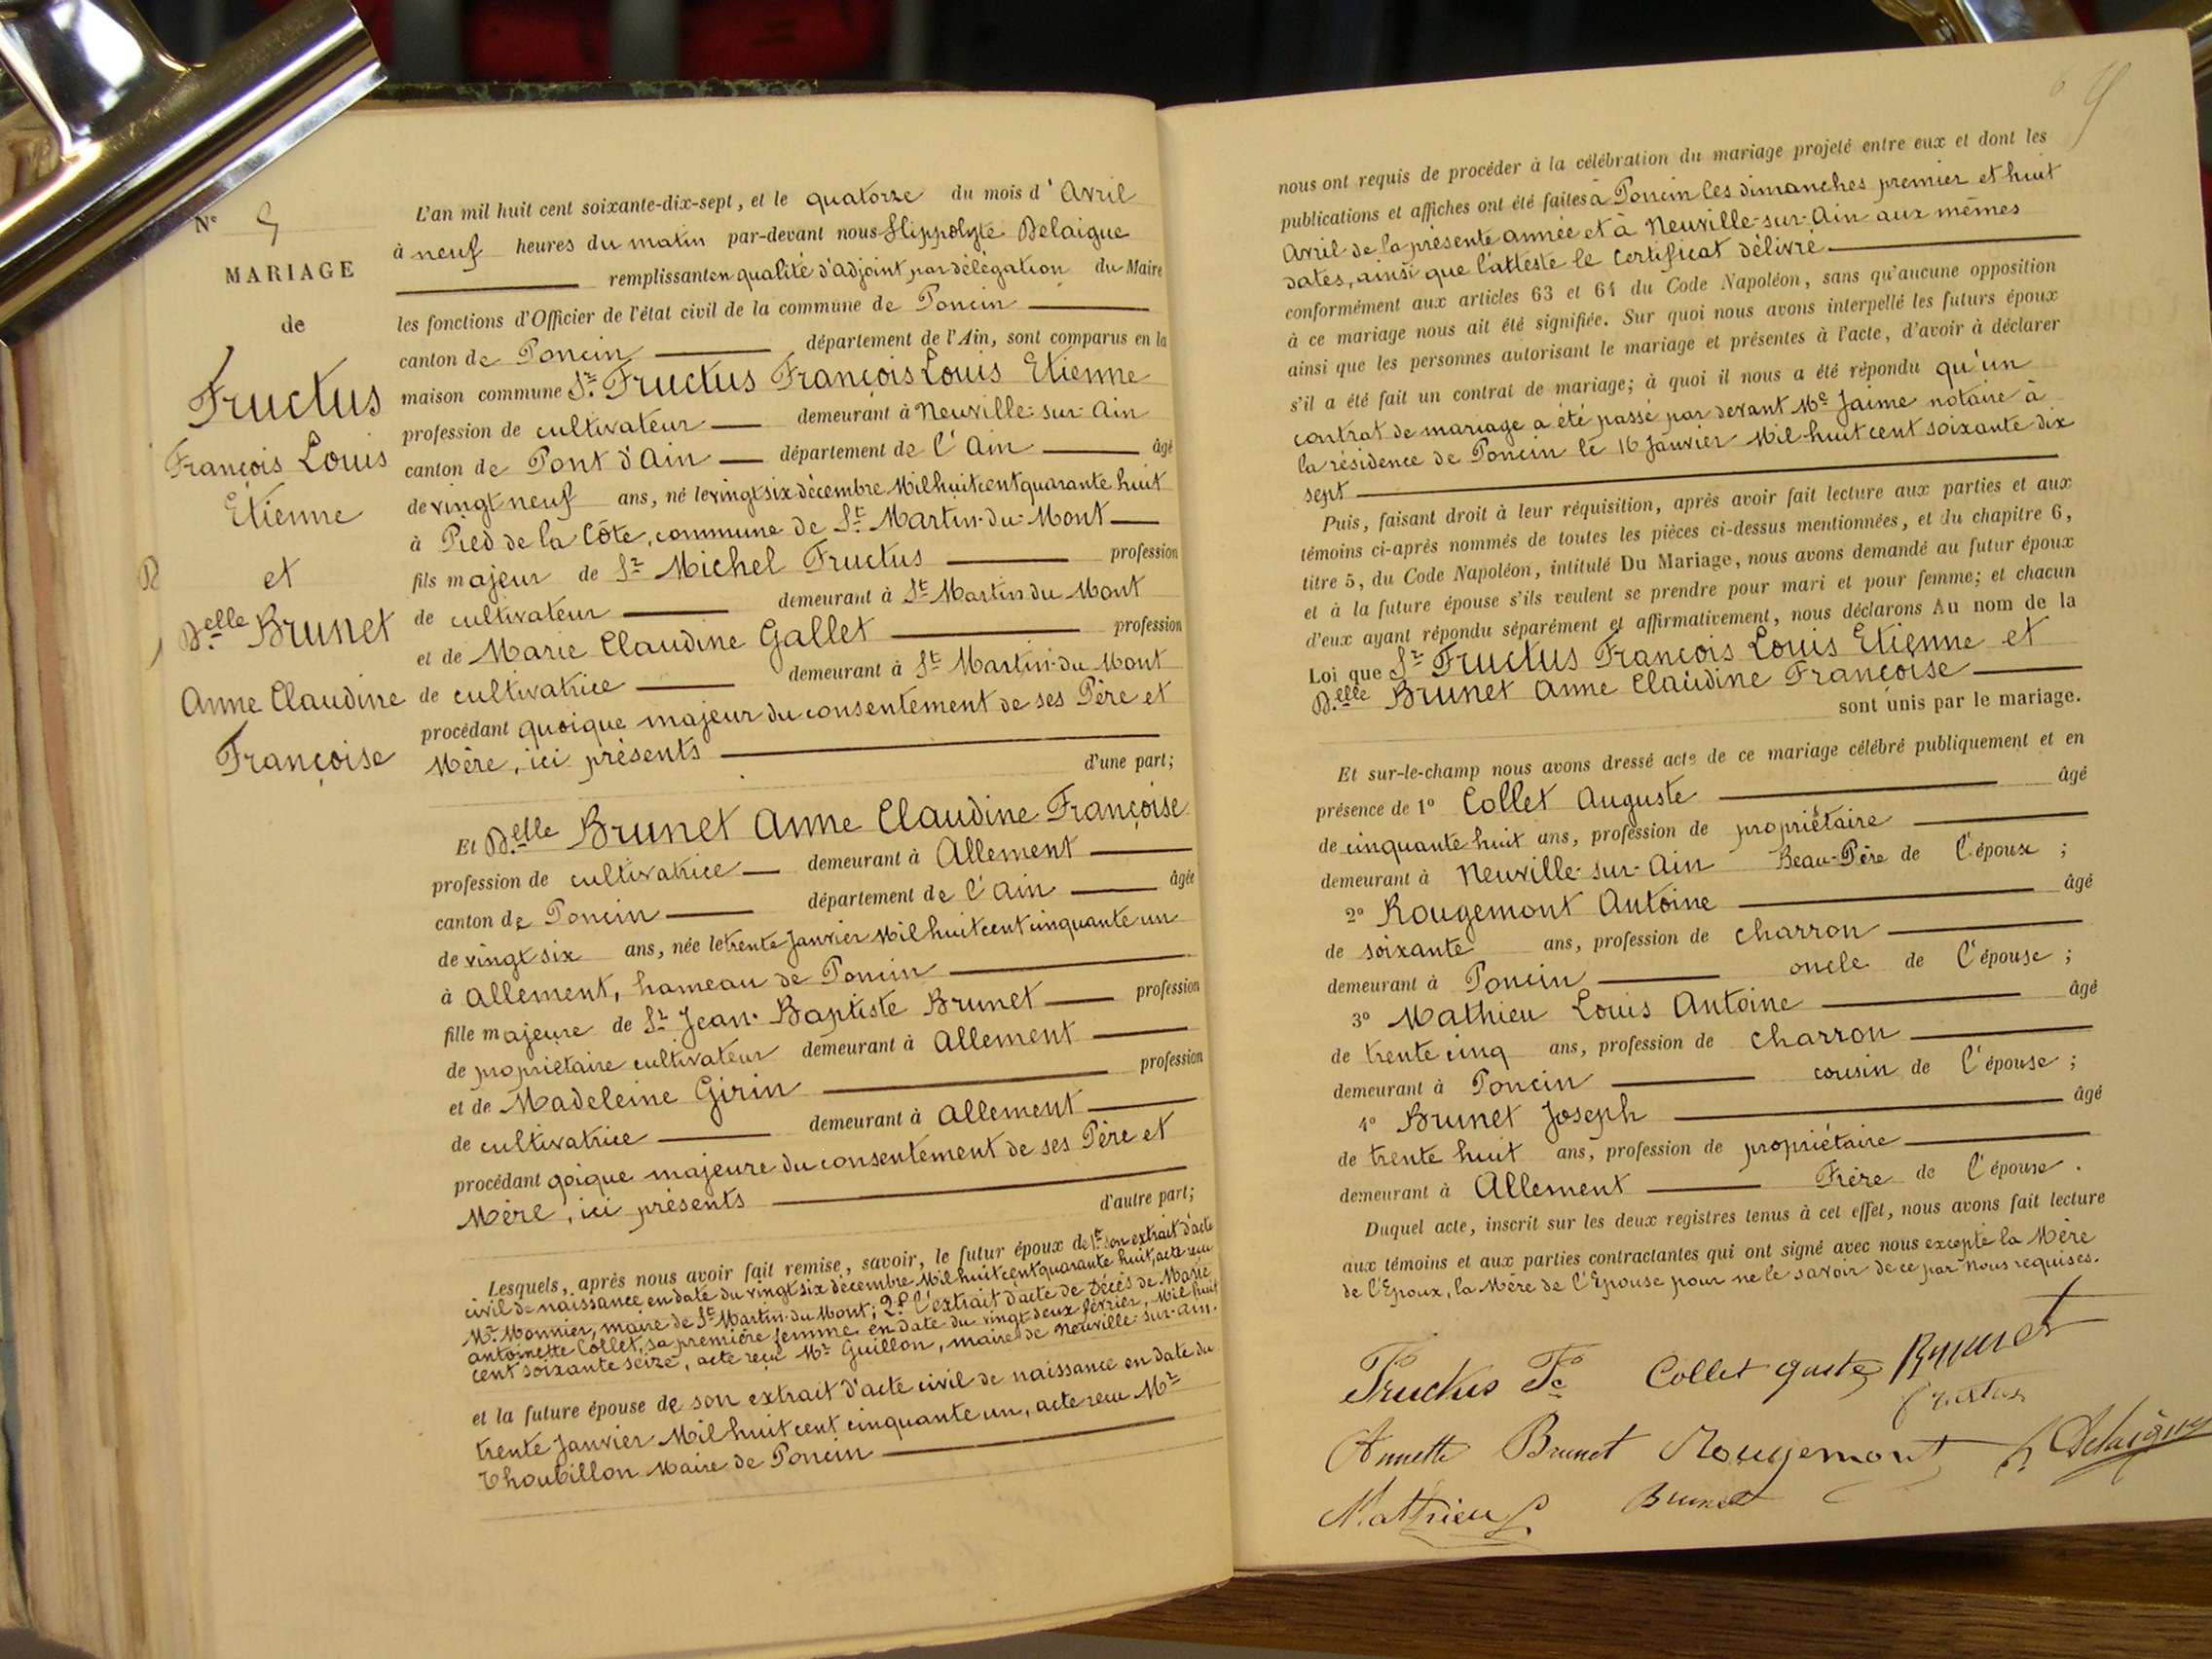 N° 9
MARIAGE
de
Fructus
François Louis
Etienne
et
D.elle Brunet
Anne Claudine
Françoise
L'an mil huit cent soixante-dix-sept, et le quatorze du mois d'Avril
à neuf heures du matin par-devant nous Hippolyte Delaigue
remplissant en qualité d'adjoint par délégation du Maire
les fonctions d'Officier de l'état civil de la commune de Poncin
canton de Poncin département de l'Ain, sont comparus en la
maison commune Sr. Fructus François Louis Etienne
profession de cultivateur demeurant à Neuville-sur-Ain
canton de Pont d'Ain département de l'Ain âgé
de vingt neuf ans, né le vingt six décembre Mil huit cent quarante huit
à Pied de la Côte, commune de St. Martin-du-Mont
fils majeur de Sr. Michel Fructus profession
de cultivateur demeurant à St. Martin du Mont
et de Marie Claudine Gallet profession
de cultivatrice demeurant à St. Martin-du Mont
procédant quoique majeur du consentement de ses Père et
Mère, ici présents d'une part;
Et D.elle Brunet Anne Claudine Françoise
profession de cultivatrice demeurant à Allement
canton de Poncin département de l'Ain âgée
de vingt six ans, née le trente Janvier Mil huit cent cinquante un
à Allement, hameau de Poncin
fille majeure de Sr. Jean-Baptiste Brunet profession
de propriétaire cultivateur demeurant à Allement
et de Madeleine Girin profession
de cultivatrice demeurant à Allement
procédant qoique majeure du consentement de ses Père et
Mère, ici présents d'autre part;
Lesquels, après nous avoir fait remise, savoir, le futur époux de 1er. son extrait d'acte
civil de naissance en date du vingt six décembre Mil huit cent quarante huit, acte reçu
Mr. Monnier, maire de St. Martin-du-Mont; 2° l'extrait d'acte de Décès de Marie
antoinette Collet, sa première femme en date du vingt-deux février, Mil huit
cent soixante seize, acte reçu Mr. Guillon, maire de Neuville-sur-Ain.
et la future épouse de son extrait d'acte civil de naissance en date du
trente Janvier Mil huit cent cinquante un, acte reçu Mr
Thoubillon Maire de Poncin
9
nous ont requis de procéder à la célébration du mariage projeté entre eux et dont les
publications et affiches ont été faites à Poncin les dimanches premier et huit
Avril de la présente année et à Neuville-sur-Ain aux mêmes
dates, ainsi que l'atteste le Certificat délivré
conformément aux articles 63 et 64 du Code Napoléon, sans qu'aucune opposition
à ce mariage nous ait été signifiée. Sur quoi nous avons interpellé les futurs époux
ainsi que les personnes autorisant le mariage et présentes à l'acte, d'avoir à déclarer
s'il a été fait un contrat de mariage; à quoi il nous a été répondu qu'un
contrat de mariage a été passé par devant Me Jaime notaire à
la résidence de Poncin le 16 Janvier Mil-huit cent soixante dix
sept
Puis, faisant droit à leur réquisition, après avoir fait lecture aux parties et aux
témoins ci-après nommés de toutes les pièces ci-dessus mentionnées, et du chapitre 6,
titre 5, du Code Napoléon, intitulé Du Mariage, nous avons demandé au futur époux
et à la future épouse s'ils veulent se prendre pour mari et pour femme; et chacun
d'eux ayant répondu séparément et affirmativement, nous déclarons Au nom de la
Loi que Sr. Fructus François Louis Etienne et
D.elle Brunet Anne Claudine Françoise
sont unis par le mariage.
Et sur-le-champ nous avons dressé acte de ce mariage célébré publiquement et en
présence de 1° Collet Auguste âgé
de cinquante huit ans, profession de propriétaire
demeurant à Neuville-sur-Ain Beau-Père de l'époux ;
2° Rougemont Antoine âgé
de soixante ans, profession de charron
demeurant à Poncin oncle de l'épouse ;
3° Mathieu Louis Antoine âgé
de trente cinq ans, profession de charron
demeurant à Poncin cousin de l'épouse ;
4° Brunet Joseph âgé
de trente huit ans, profession de propriétaire
demeurant à Allement Frère de l'épouse.
Duquel acte, inscrit sur les deux registres tenus à cet effet, nous avons fait lecture
aux témoins et aux parties contractantes qui ont signé avec nous excepté la Mère
de l'Epoux, la Mère de l'Epouse pour ne le savoir de ce par Nous requises.
Fructus Collet Brunet
Fructus
Annette Brunet Rougemont h Delaigue
Mathieu L Brunet